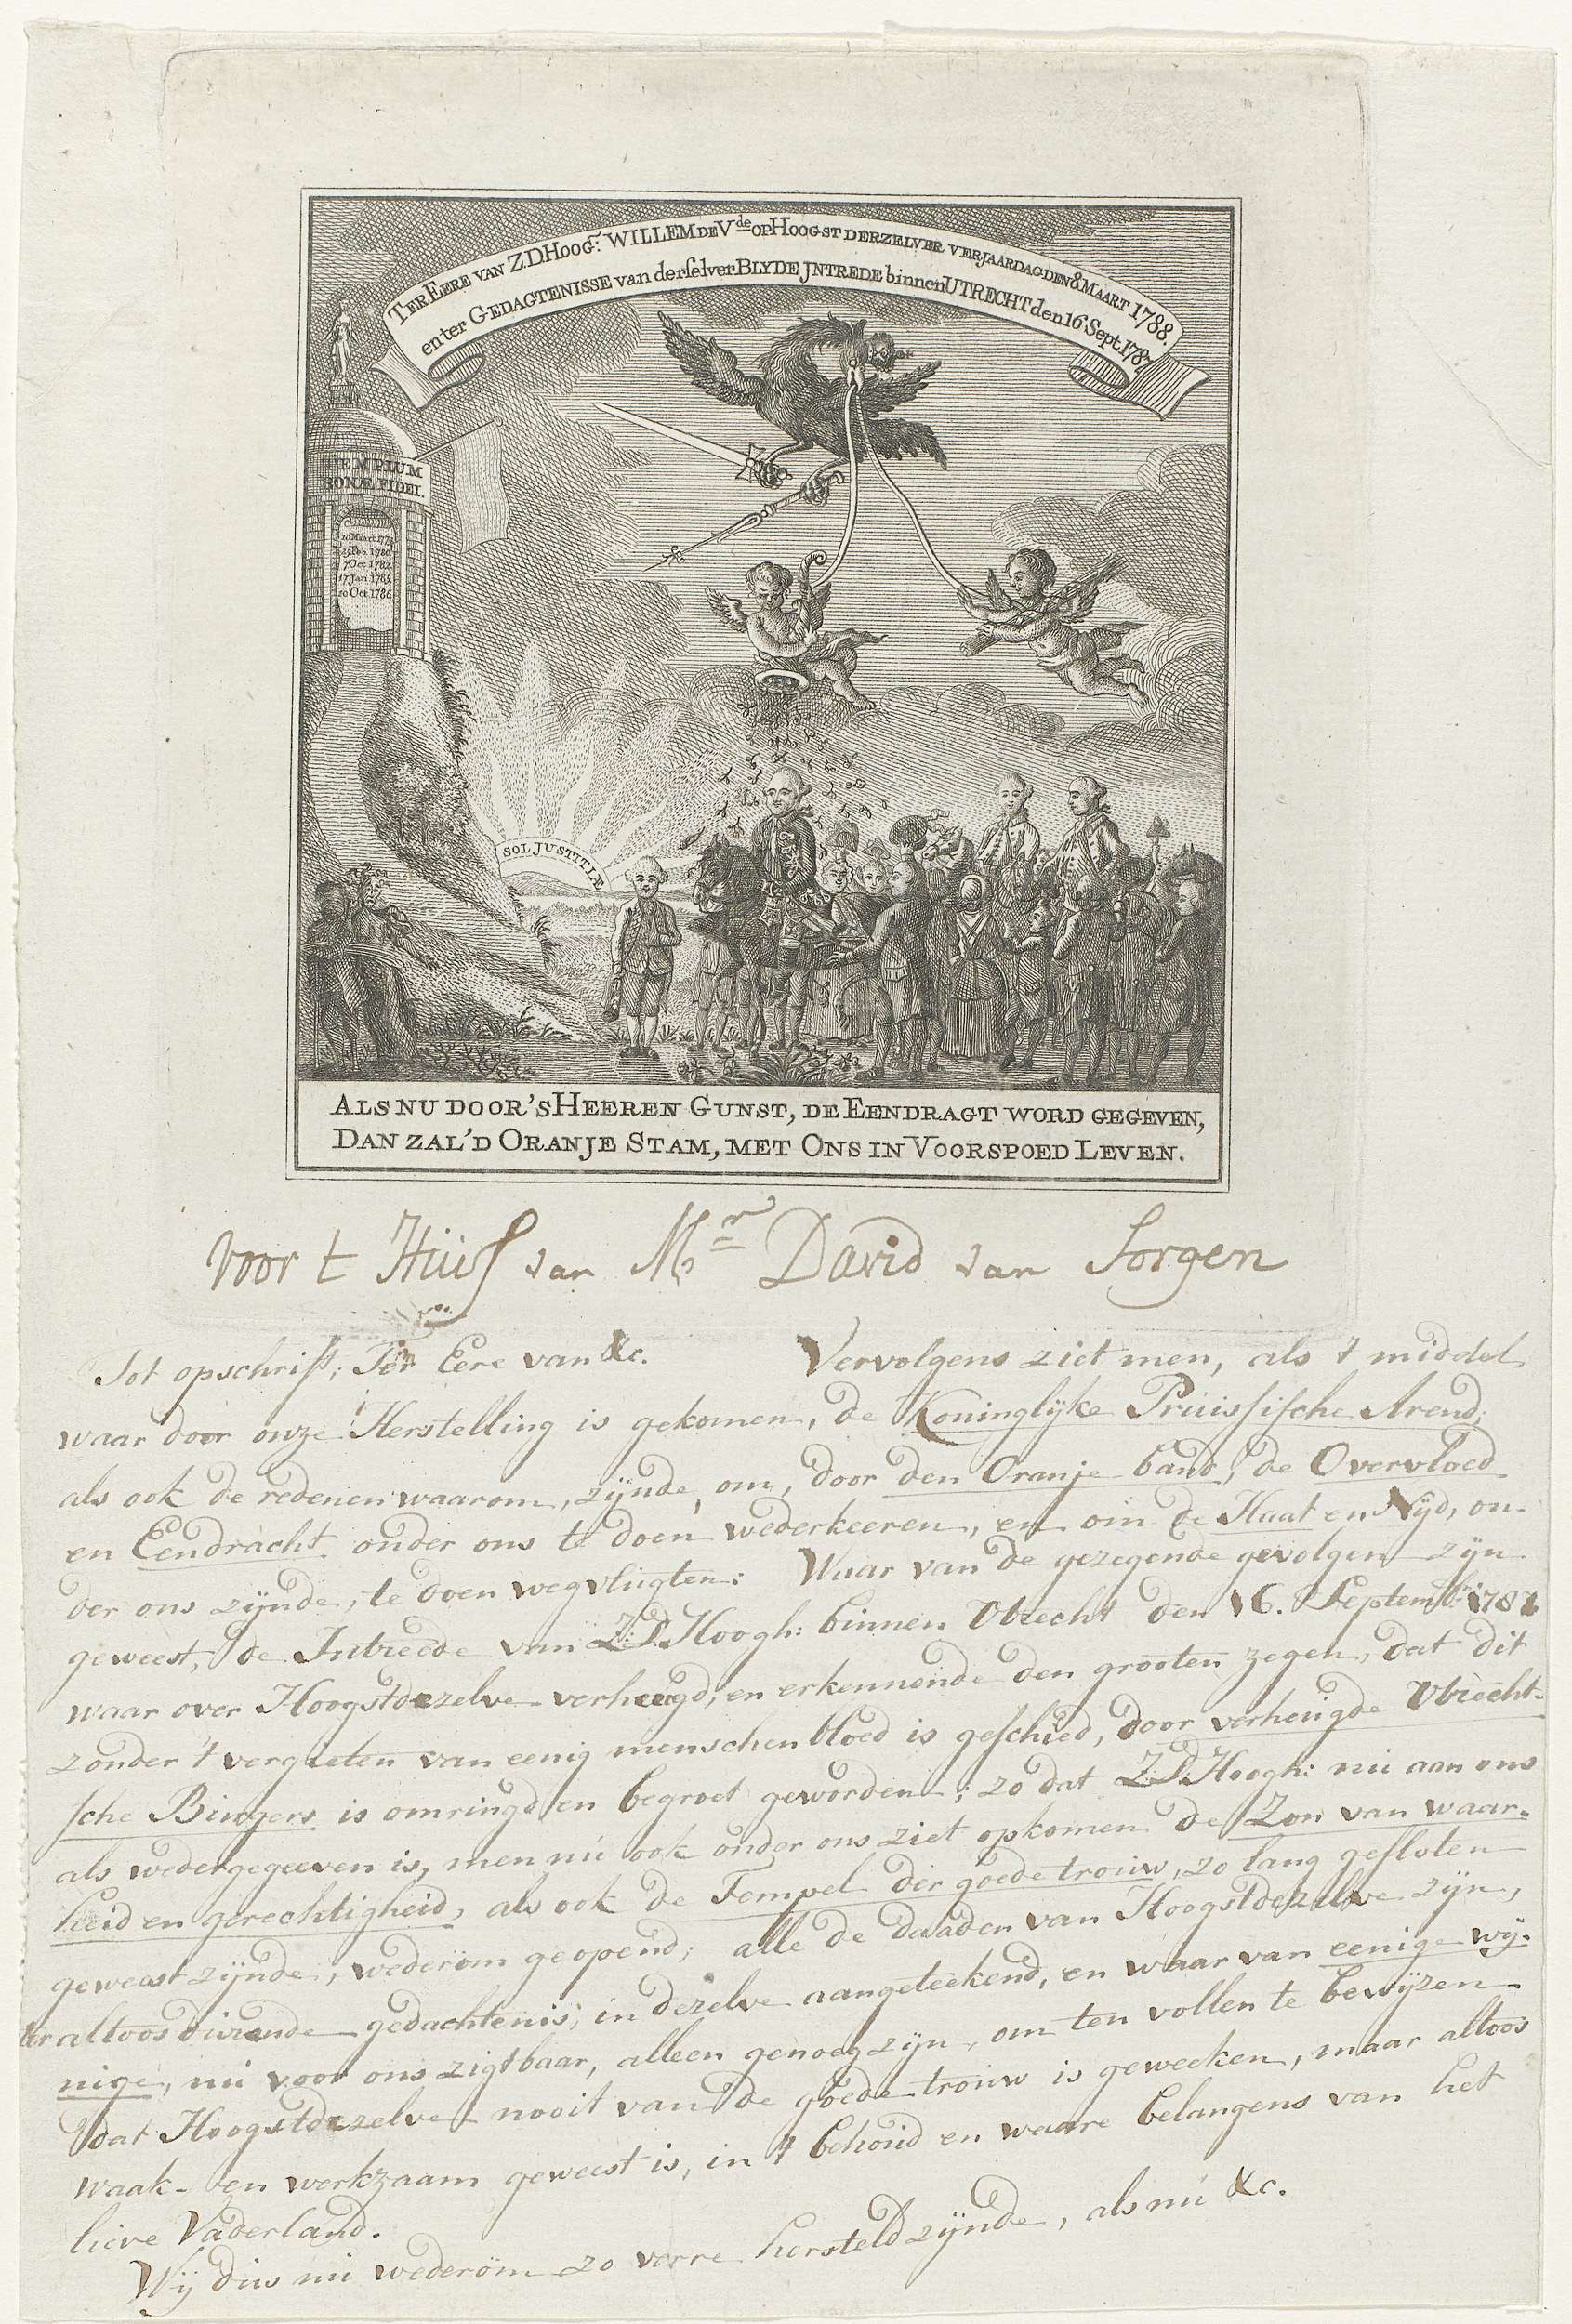 TER EERE VAN Z.D.HOOG:^t WILLEM DE V^de OP HOOGST DERZELVER VERJAARDAG DEN 8 MAART 1788.
en ter GEDAGTENISSE van derselver BLYDE JNTREDE binnen UTRECHT den 16 Sept. 1787.
TEMPLUM
BONÆ FIDEI.
10 Maart 1779
25 Feb. 1780
7 Oct 1782.
17 Jan 1785.
10 Oct 1786.
SOL JUSTITIÆ
ALS NU DOOR 'S HEEREN GUNST, DE EENDRAGT WORD GEGEVEN,
DAN ZAL 'D ORANJE STAM, MET ONS IN VOORSPOED LEVEN.
Voor t Hüis van M^r David van Sorgen
Tot opschrift; Ter Eere van &c. Vervolgens ziet men, als 't middel
waar door onze Herstelling is gekomen, de Koninglyke Prúissische Arend;
als ook de redenen waarom, zijnde, om, door den Oranje band, de Overvloed
en Eendracht onder ons te doen wederkeeren, en om de Haat en Nijd, on-
der ons zijnde, te doen wegvlúgten: Waar van de gezegende gevolgen zijn
geweest, de Intreede van Z:D:Hoogh: binnen Utrecht den 16. Septemb^r: 1787
waar over Hoogstdezelve verheugd, en erkennende den grooten zegen, dat dit
zonder 't vergieten van eenig menschenbloed is geschied, door verheúgde Utrecht-
sche Búrgers is omringd en begroet geworden; zo dat Z:D:Hoogh: nú aan ons
als wedergegeeven is, men nú ook onder ons ziet opkomen de Zon van waar-
heid en gerechtigheid, als ook de Tempel der goede trouw, zo lang gesloten
geweest zijnde, wederom geopend; alle de daaden van Hoogstdezelve zijn,
ter altoos dúrende gedachtenis, in dezelve aangeteekend, en waar van eenige wij-
nige, nú voor ons zigtbaar, alleen genoeg zijn, om ten vollen te bewijzen
dat Hoogstdezelve nooit van de goede trouw is geweeken, maar altoos
waak- en werkzaam geweest is, in 't behoúd en waare belangens van het
lieve Vaderland.
Wij dús nú wederom zo verre hersteld zijnde, als nú &c.